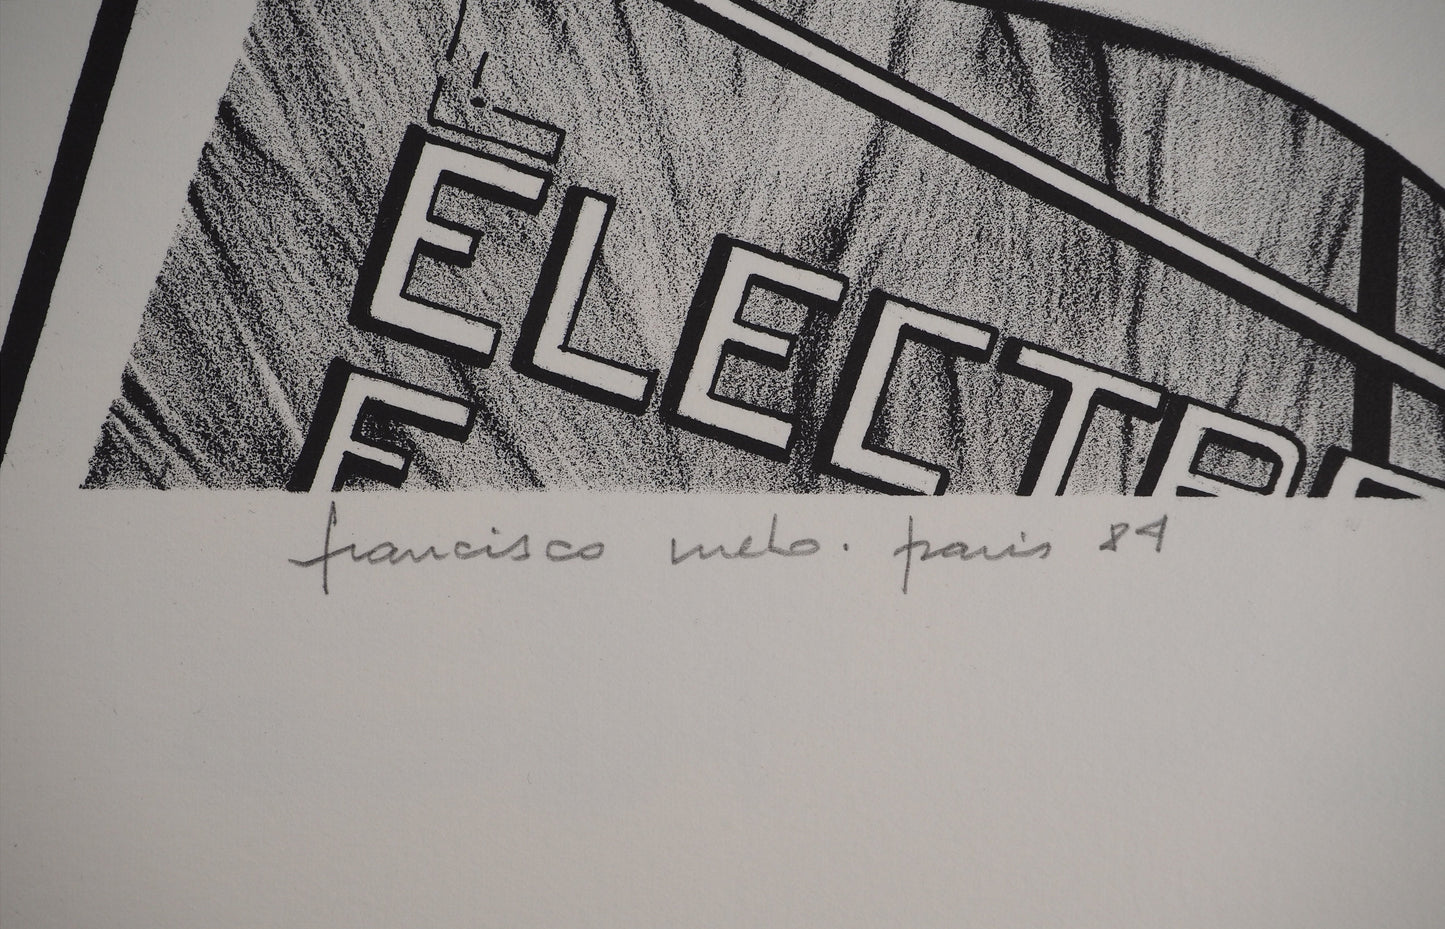 ELECTR
F
francisco melo. paris 84